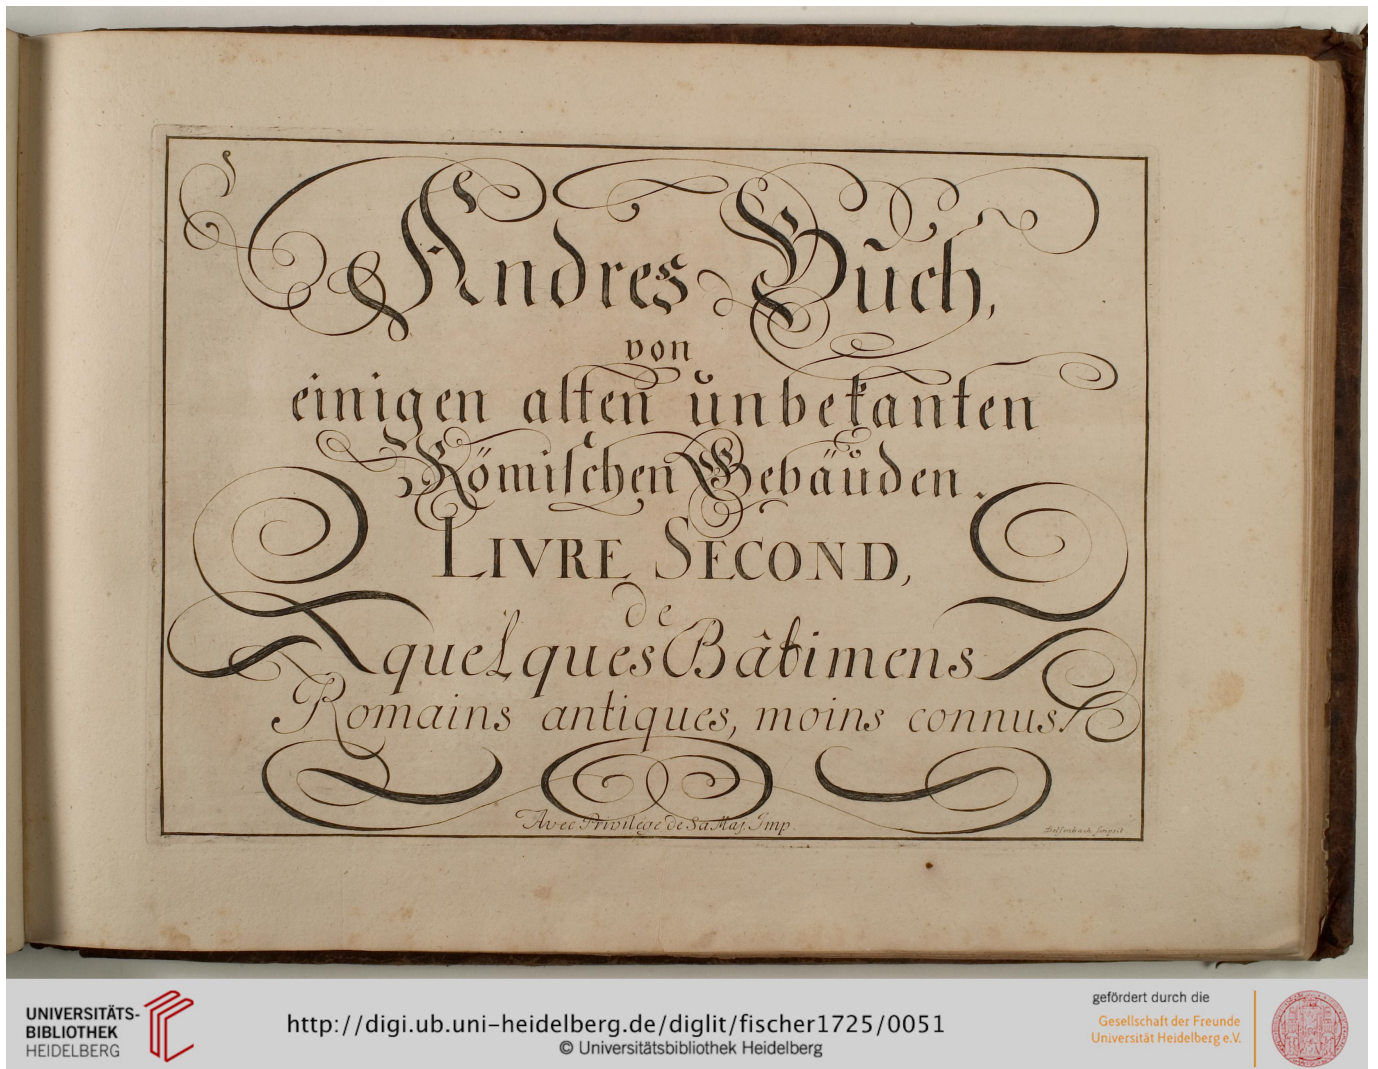 Andres Buch,
von
einigen alten unbekanten
Römischen Gebäuden.
LIVRE SECOND,
de
quelques Bâtimens
Romains antiques, moins connus.
Avec Privilege de Sa Maj. Imp.
Delsenbach sculpsit
UNIVERSITÄTS-
BIBLIOTHEK
HEIDELBERG
http://digi.ub.uni-heidelberg.de/diglit/fischer1725/0051
© Universitätsbibliothek Heidelberg
gefördert durch die
Gesellschaft der Freunde
Universität Heidelberg e.V.